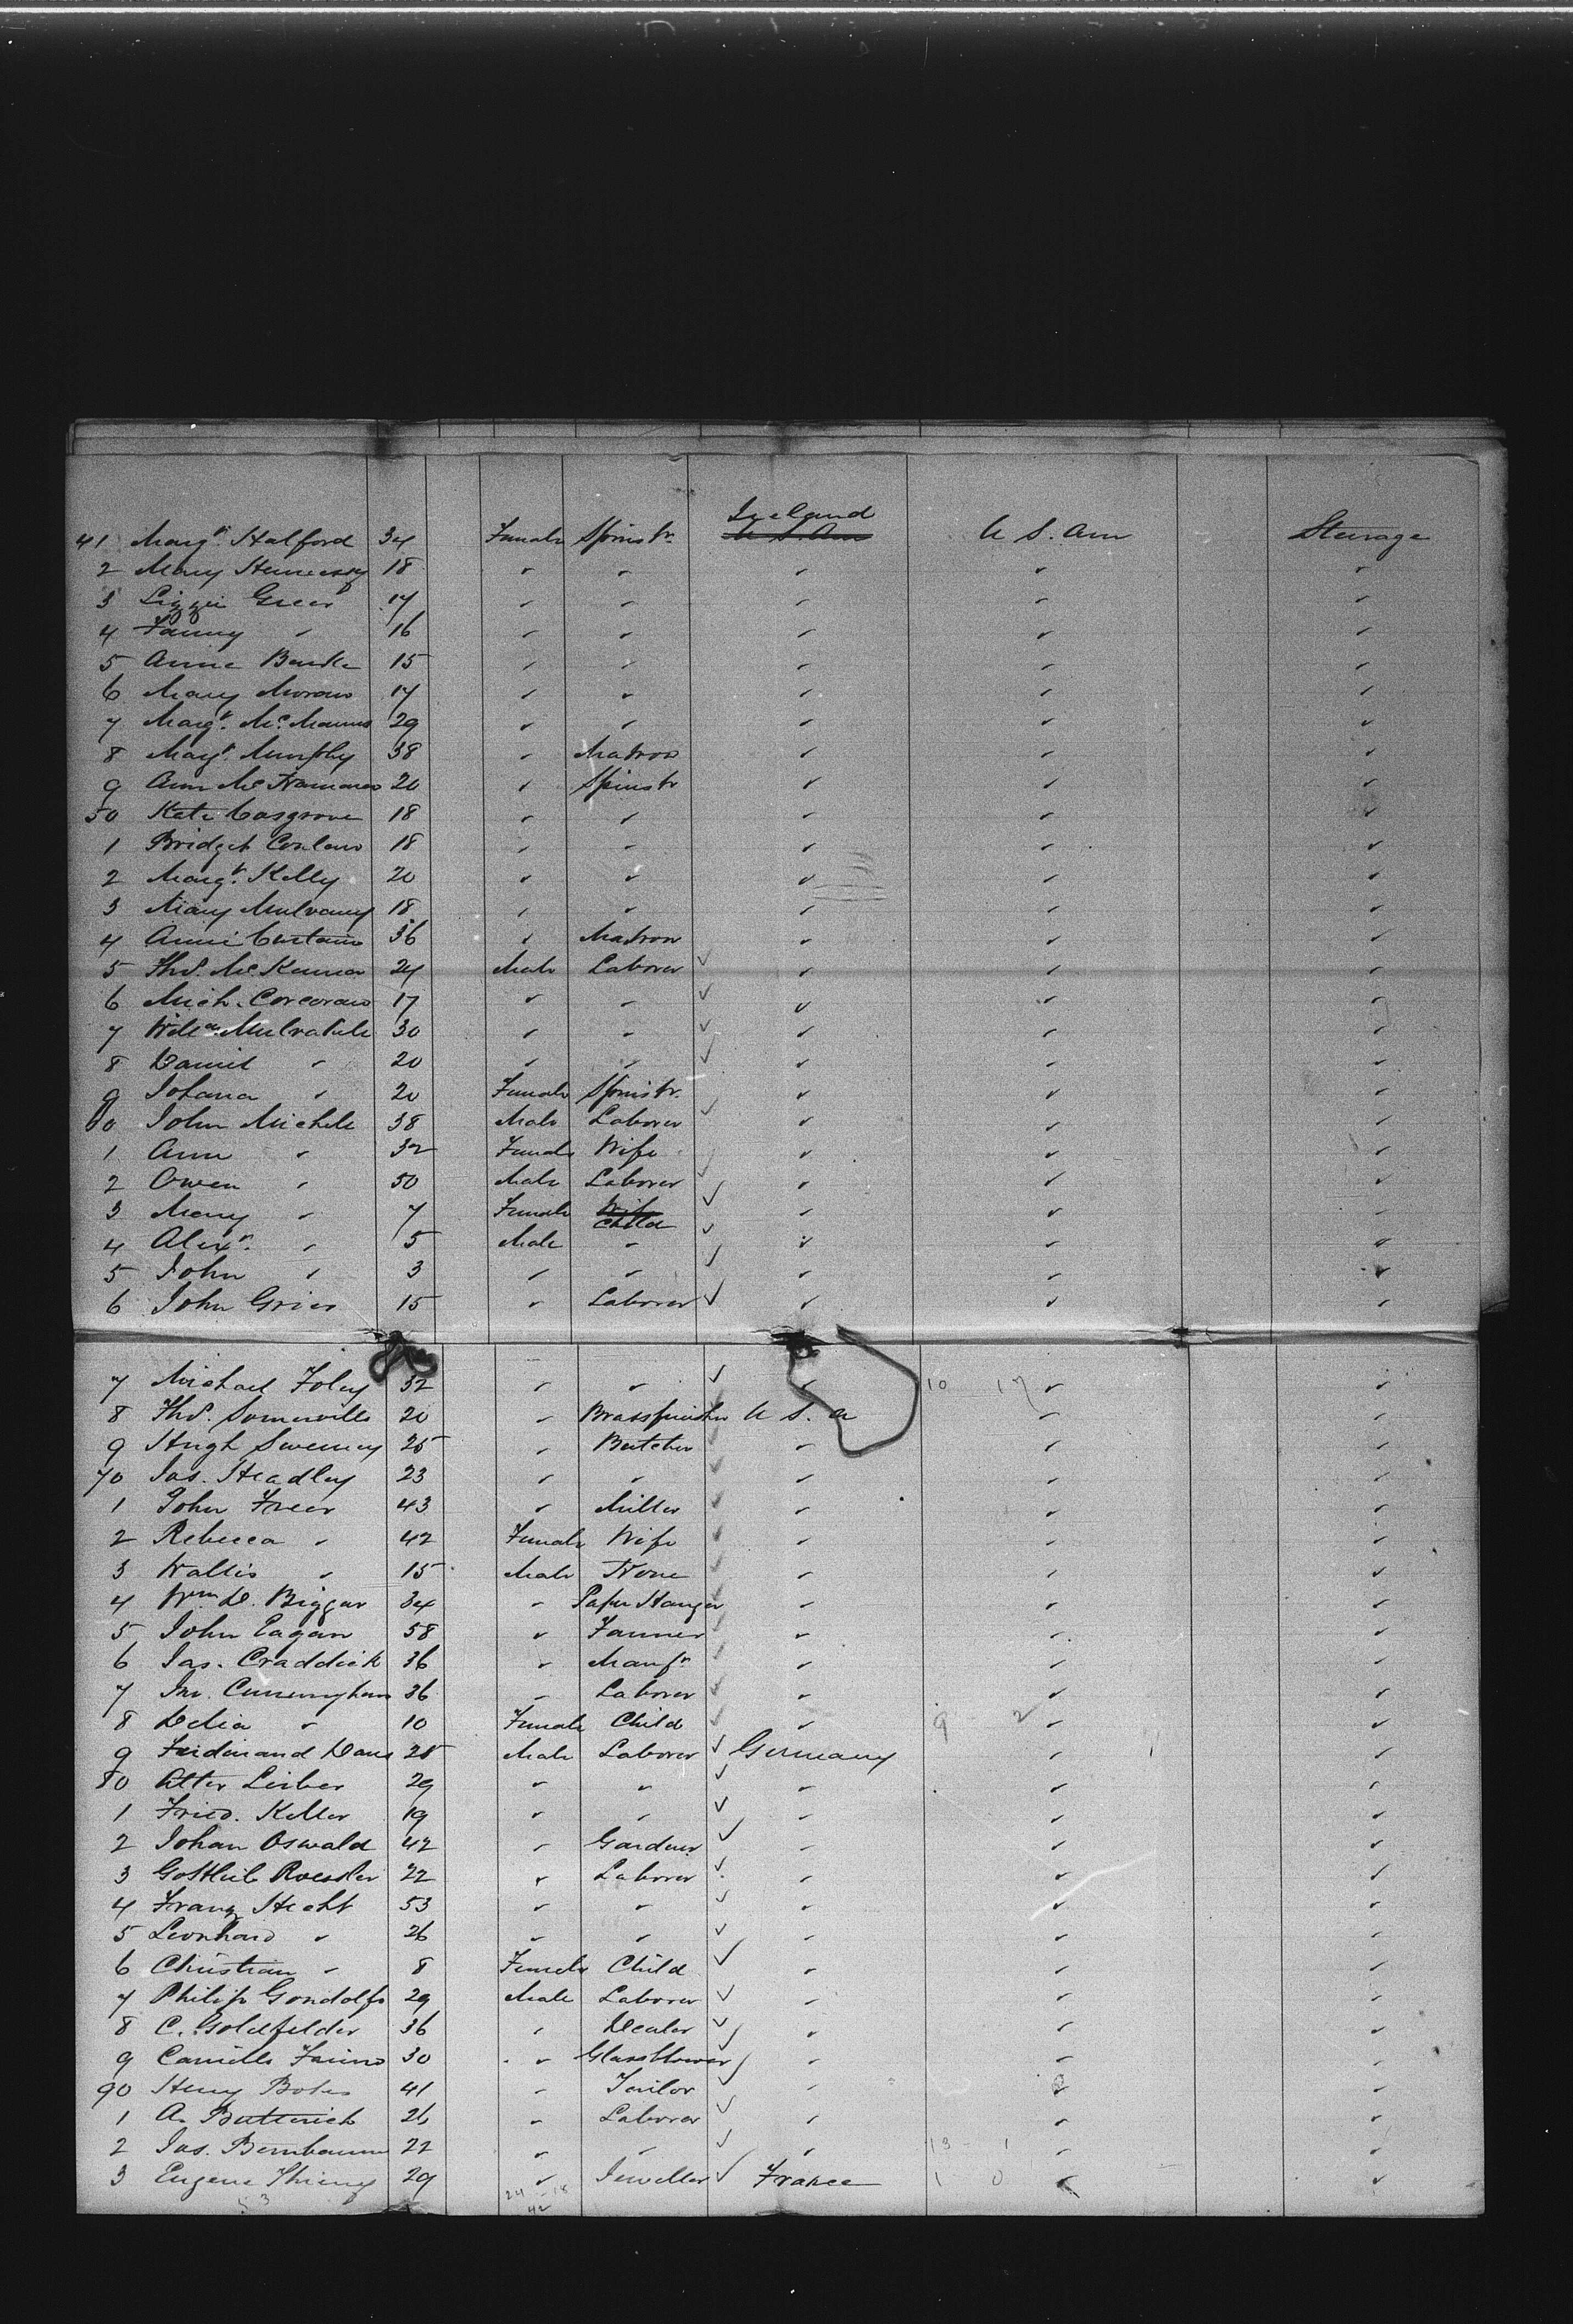 Ireland
41 Margt. Halford 34 Female Spinstr. U S. Am U S. Am Steerage
2 Mary Hennessy 18 " " " " "
3 Lizzie Greer 17 " " " " "
4 Fanny " 16 " " " " "
5 Anne Burke 15 " " " " "
6 Mary Moran 17 " " " " "
7 Margt. Mc.Manus 29 " " " " "
8 Margt. Murphy 38 " Matron " " "
9 Ann McNamara 20 " Spinstr " " "
50 Kate Cosgrove 18 " " " " "
1 Bridget Conlan 18 " " " " "
2 Margt. Kelly 20 " " " " "
3 Mary Mulvany 18 " " " " "
4 Annie Curtain 36 " Matron " " "
5 Thos. McKenna 24 Male Laborer " " "
6 Mich. Corcoran 17 " " " " "
7 Willm. 30 " " " " "
8 Daniel " 20 " " " " "
9 Johana " 20 Female Spinstr. " " "
60 John Michell 38 Male Laborer " " "
1 Ann " 32 Female Wife " " "
2 Owen " 50 Male Laborer " " "
3 Mary " 7 Female Wife Child " " "
4 Alexr. " 5 Male " " " "
5 John " 3 " " " " "
6 John Grier 15 " Laborer " " "
7 Michael Foley 32 " " " 10 17 " "
8 Thos. Somerville 20 " Brassfinisher U S. A " "
9 Hugh Sweeney 25 " Butcher " " "
70 Jas. Headley 23 " " " " "
1 John Freer 43 " Miller " " "
2 Rebecca " 42 Female Wife " " "
3 Wallis " 15 Male None " " "
4 Wm. D. Biggar 34 " Paper Hanger " " "
5 John Eagan 58 " Farmer " " "
6 Jas. Craddick 36 " Manfr. " " "
7 Jno. Cunningham 36 " Laborer " " "
8 Delia " 10 Female Child " 9 2 " "
9 Ferdinand Daus 25 Male Laborer Germany " "
80 Leiber 29 " " " " "
1 Fried. Keller 19 " " " " "
2 Johan Oswald 42 " Gardner " " "
3 Gottlieb Roessler 22 " Laborer " " "
4 Franz Hecht 53 " " " " "
5 Leonhard " 26 " " " " "
6 Christian " 8 Female Child " " "
7 Philip Gondolfo 29 Male Laborer " " "
8 C. Goldfelder 36 " Dealer " " "
9 Camille 30 " Glassblower " " "
90 Henry 41 " Tailor " " "
1 A. Butterich 26 " Laborer " " "
2 Jas. Bernbaum 22 " " " 13 1 " "
3 Eugene Thieng 29 " Jeweller France 1 0 " "
53 24 - 18
42